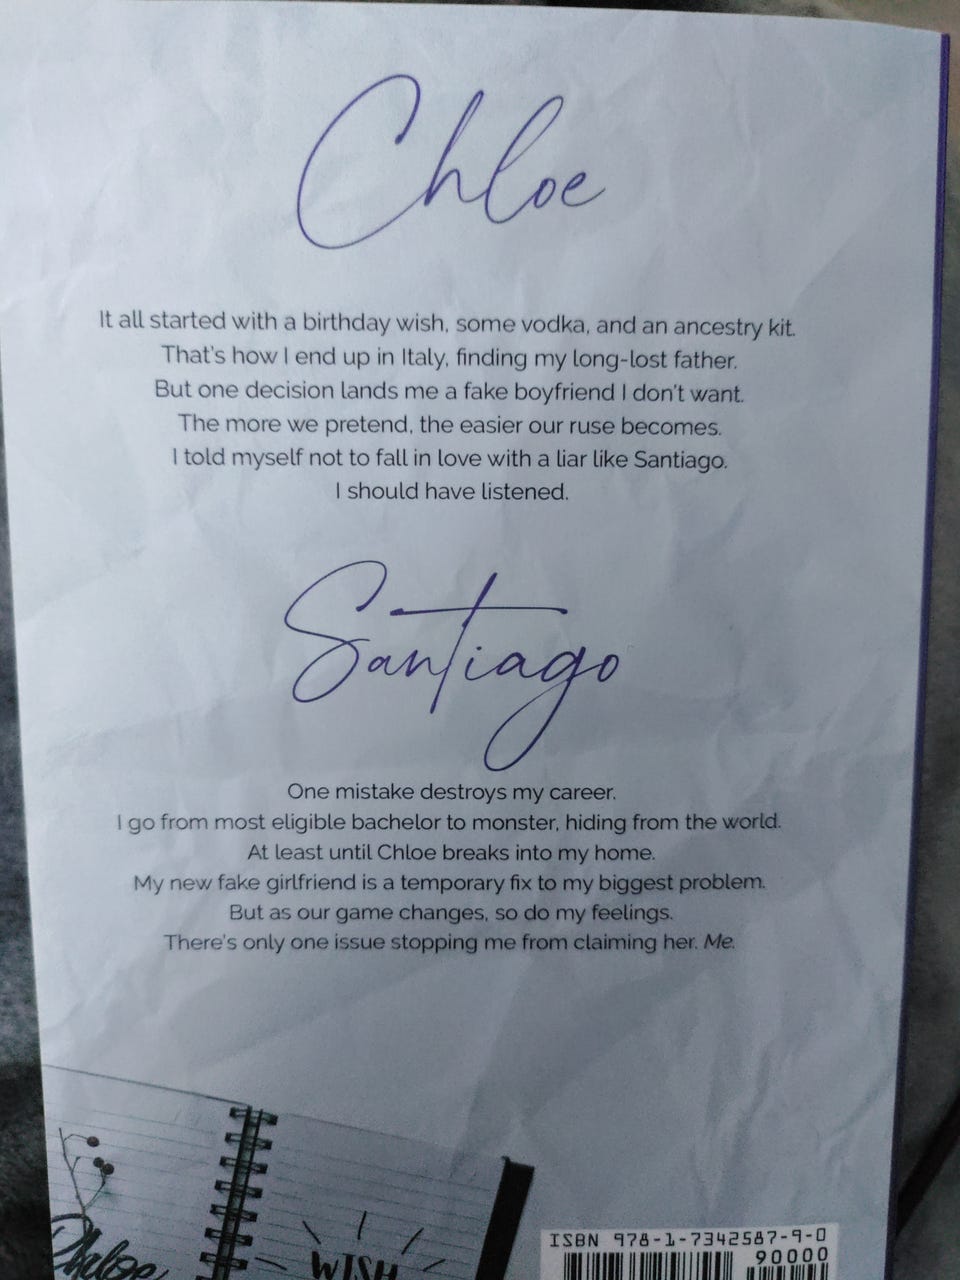 Chloe
It all started with a birthday wish, some vodka, and an ancestry kit.
That's how I end up in Italy, finding my long-lost father.
But one decision lands me a fake boyfriend I don't want.
The more we pretend, the easier our ruse becomes.
I told myself not to fall in love with a liar like Santiago.
I should have listened.
Santiago
One mistake destroys my career.
I go from most eligible bachelor to monster, hiding from the world.
At least until Chloe breaks into my home.
My new fake girlfriend is a temporary fix to my biggest problem.
But as our game changes, so do my feelings.
There's only one issue stopping me from claiming her. Me.
WISH
ISBN 978-1-7342587-9-0
90000